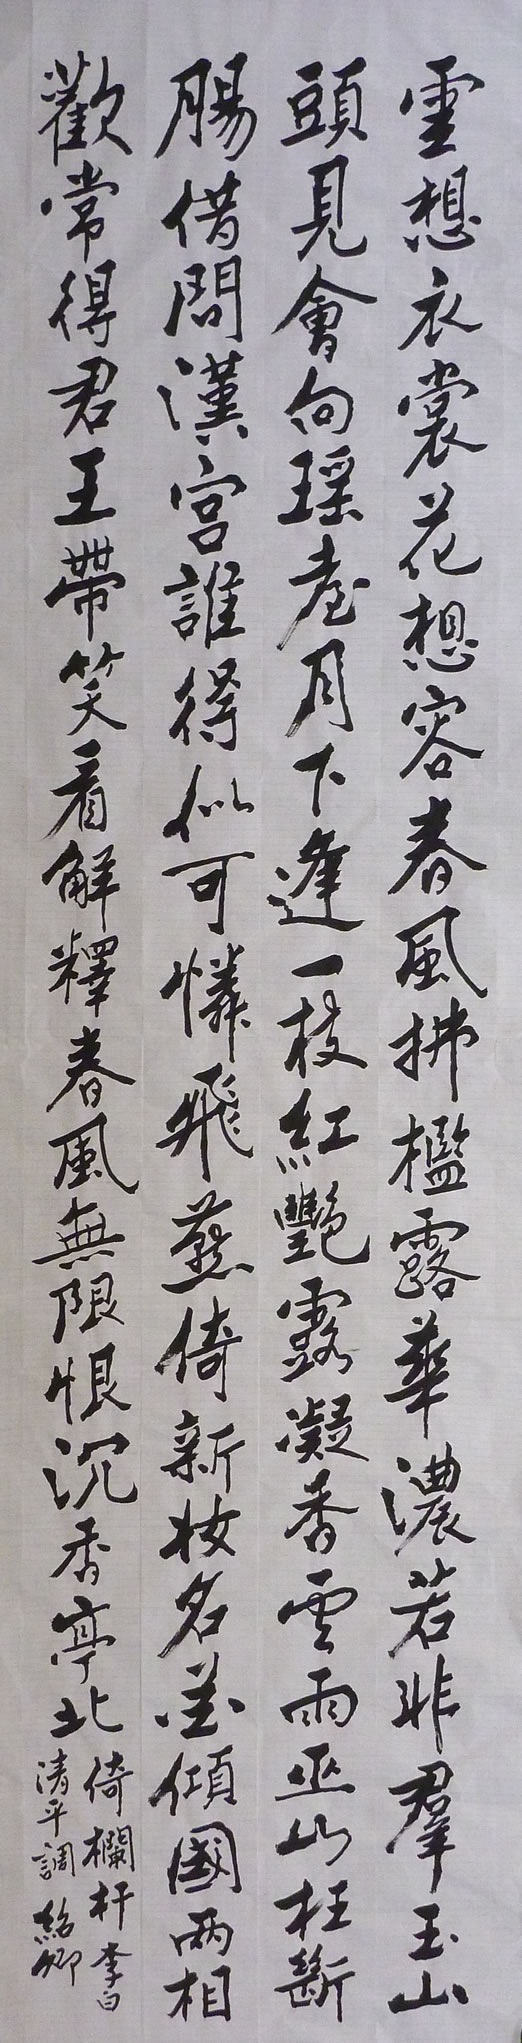 雲想衣裳花想容春風拂檻露華濃若非羣玉山
頭見會向瑶臺月下逢一枝紅豔露凝香雲雨巫山枉斷
腸借問漢宮誰得似可憐飛燕倚新妝名花傾國兩相
歡常得君王帶笑看解釋春風無限恨沉香亭北
倚欄杆李白
清平調 紹卿